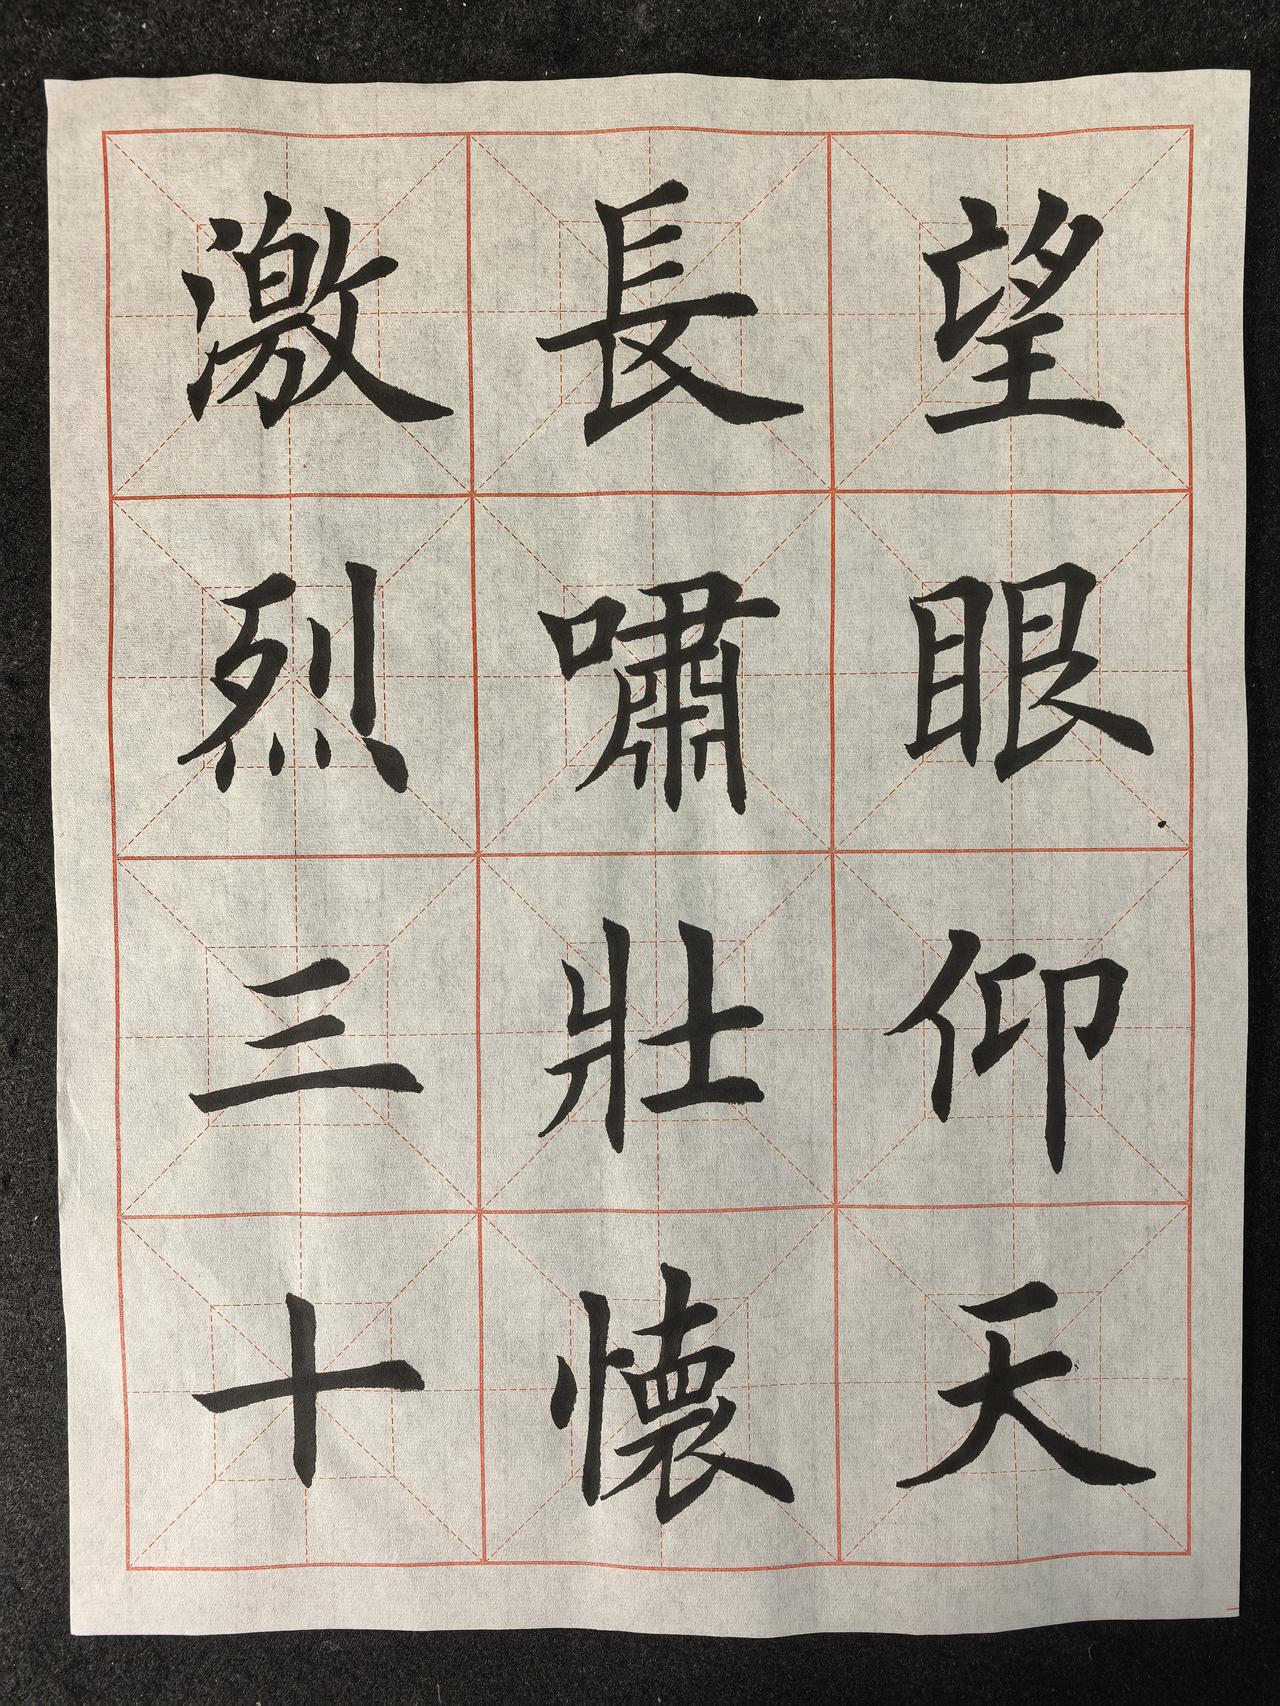 望眼仰天
長嘯壯懷
激烈三十